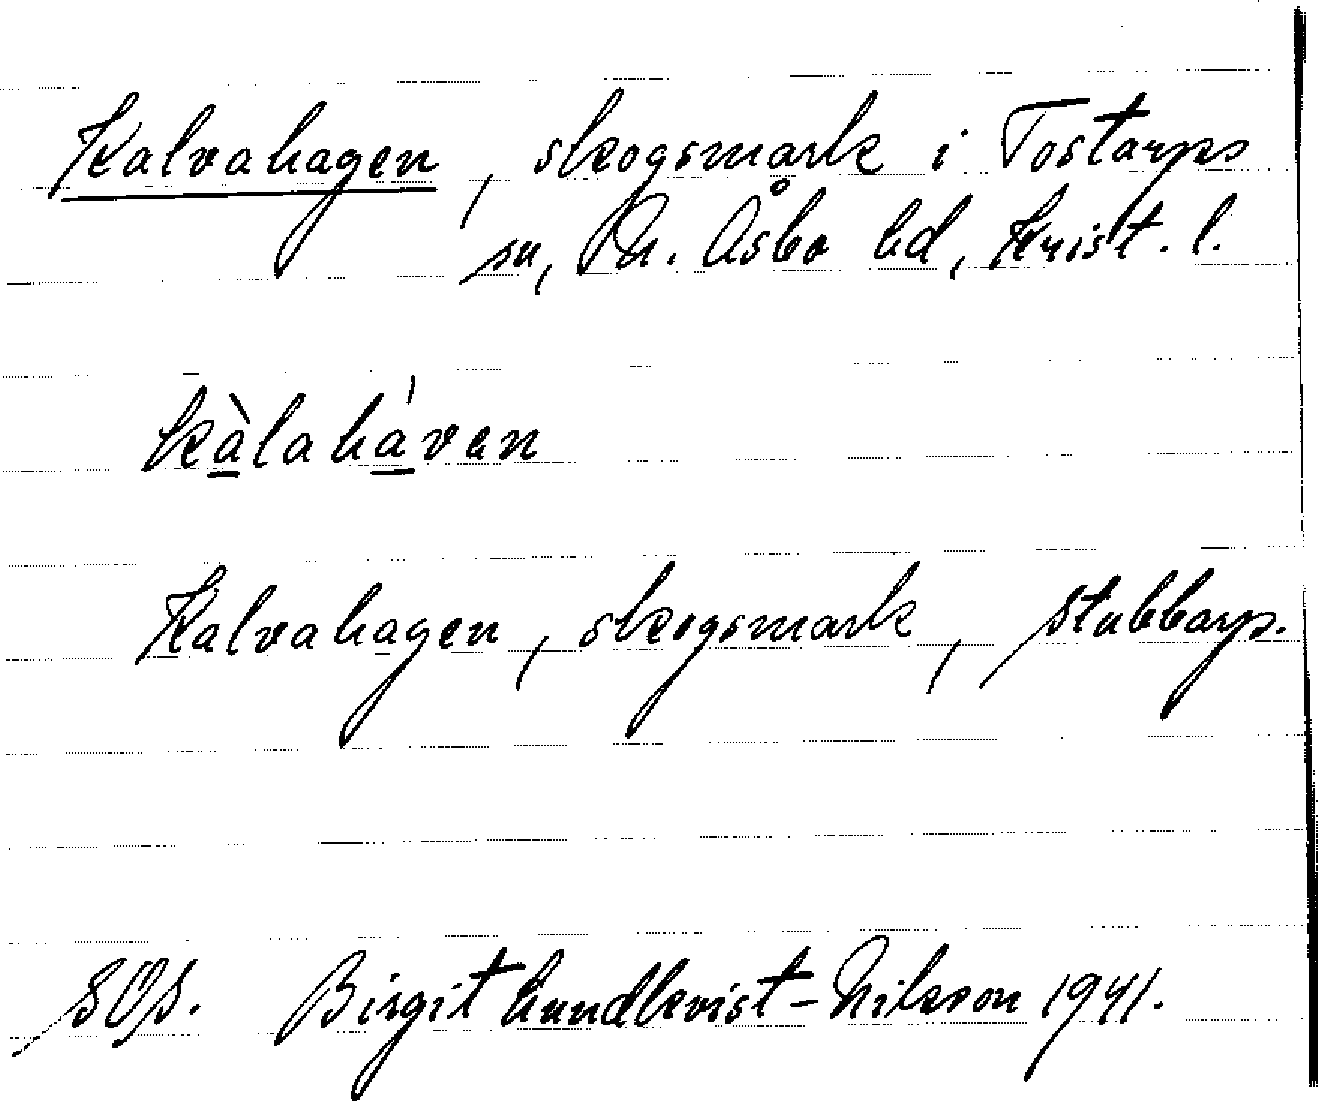 Kalvahagen, skogsmark i Tostarps
sn, N. Åsbo hd, Krist. l.
kàlahávan
Kalvahagen, skogsmark, Stubbarp.
SOS. Birgit Lundkvist-Nilsson 1941.